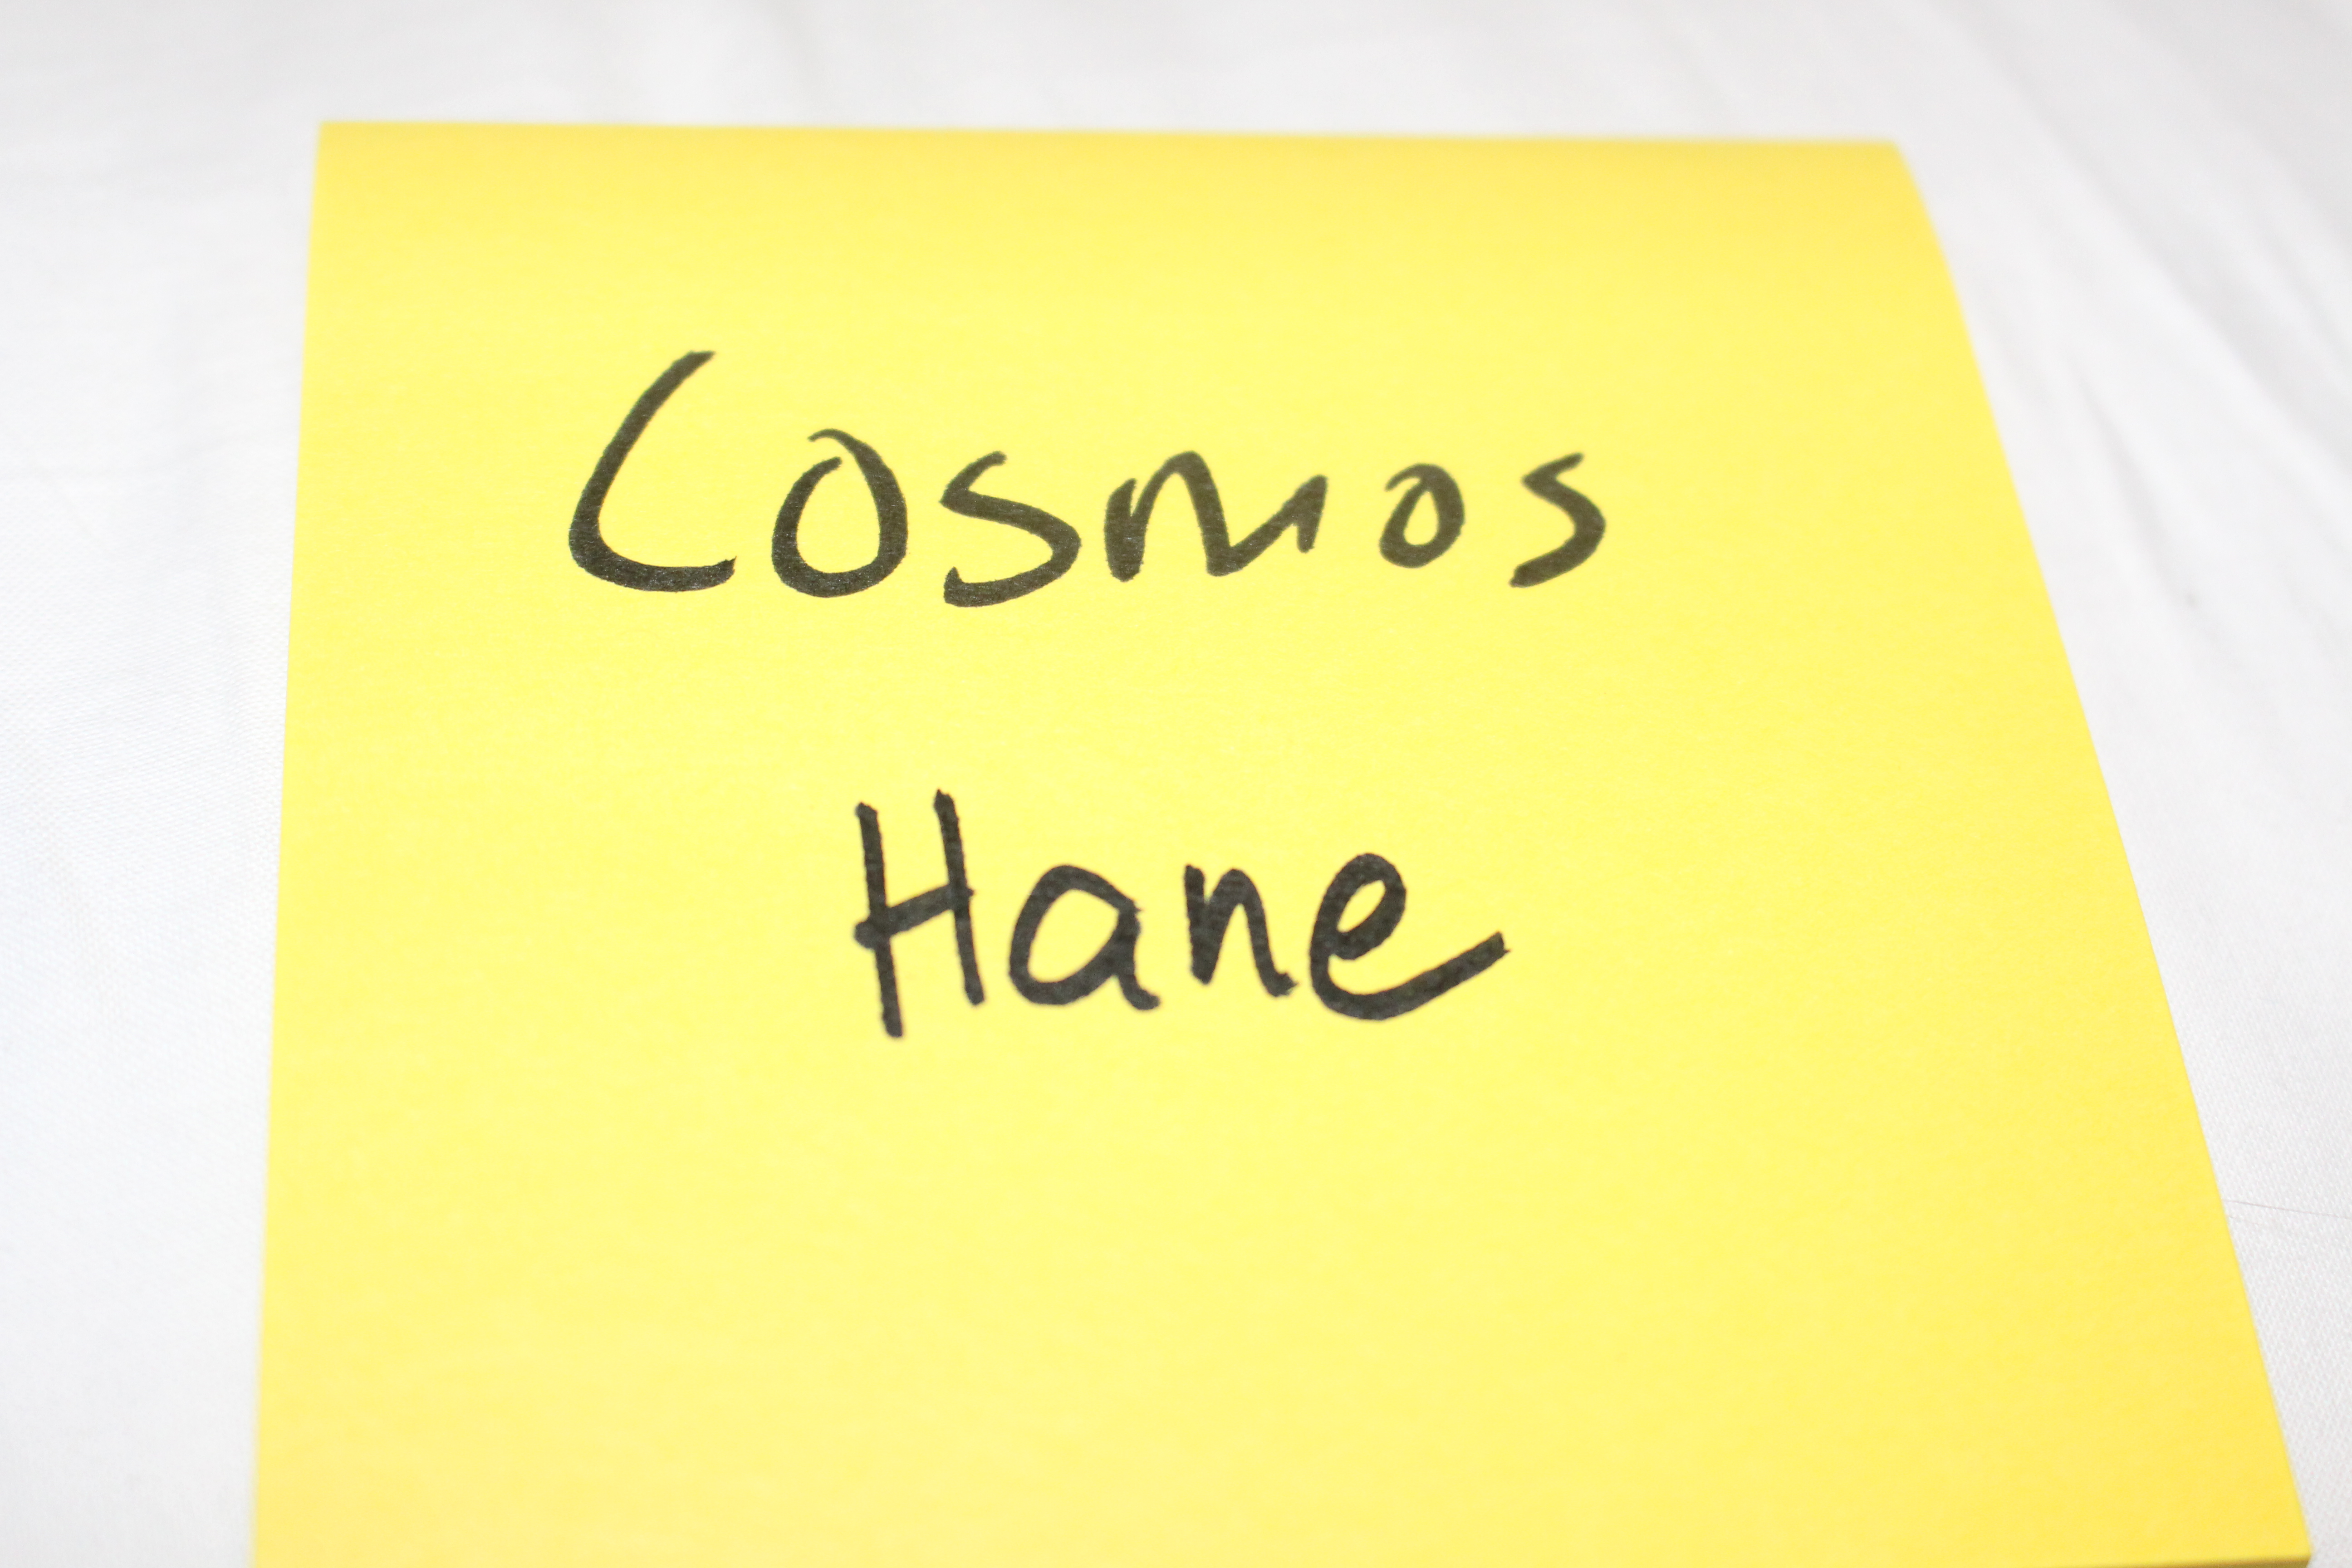 Cosmos
Hane